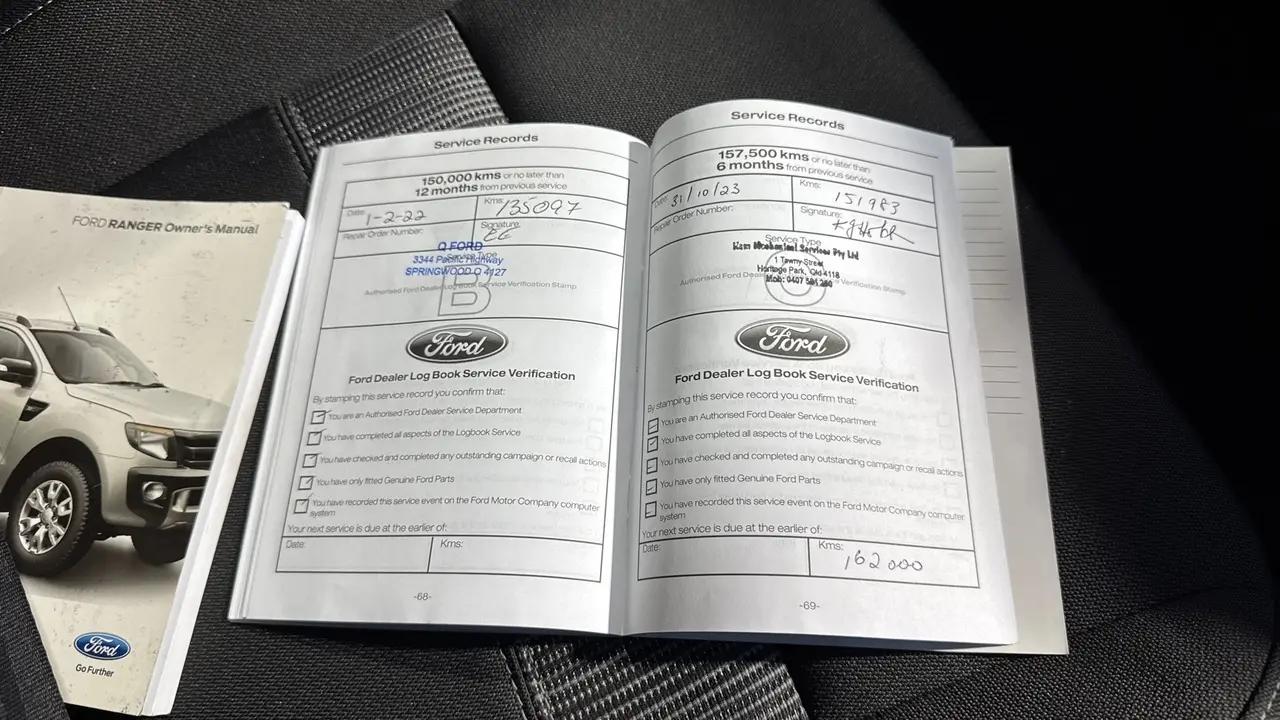 FORD RANGER Owner's Manual
Ford
Go Further
Service Records
150,000 kms or no later than
12 months from previous service
Date: 1-2-22
Kms: 135097
Repair Order Number:
Signature:
Q FORD
Service Type
3344 Pacific Highway
SPRINGWOOD Q 4127
B
Authorised Ford Dealer Log Book Service Verification Stamp
Ford
Ford Dealer Log Book Service Verification
By stamping this service record you confirm that:
You are an Authorised Ford Dealer Service Department
You have completed all aspects of the Logbook Service
You have checked and completed any outstanding campaign or recall actions
You have only fitted Genuine Ford Parts
You have recorded this service event on the Ford Motor Company computer
system
Your next service is due at the earlier of:
Date:
Kms:
-68-
Service Records
157,500 kms or no later than
6 months from previous service
Date: 31/10/23
Kms: 151983
Repair Order Number:
Signature:
Service Type
Mechanical Services Pty Ltd
1 Tawny Street
Heritage Park, Qld 4118
Mob: 0407
Authorised Ford Verification Stamp
Ford
Ford Dealer Log Book Service Verification
By stamping this service record you confirm that:
You are an Authorised Ford Dealer Service Department
You have completed all aspects of the Logbook Service
You have checked and completed any outstanding campaign or recall actions
You have only fitted Genuine Ford Parts
You have recorded this service event on the Ford Motor Company computer
system
Your next service is due at the earlier of:
Date:
Kms:
162000
-69-